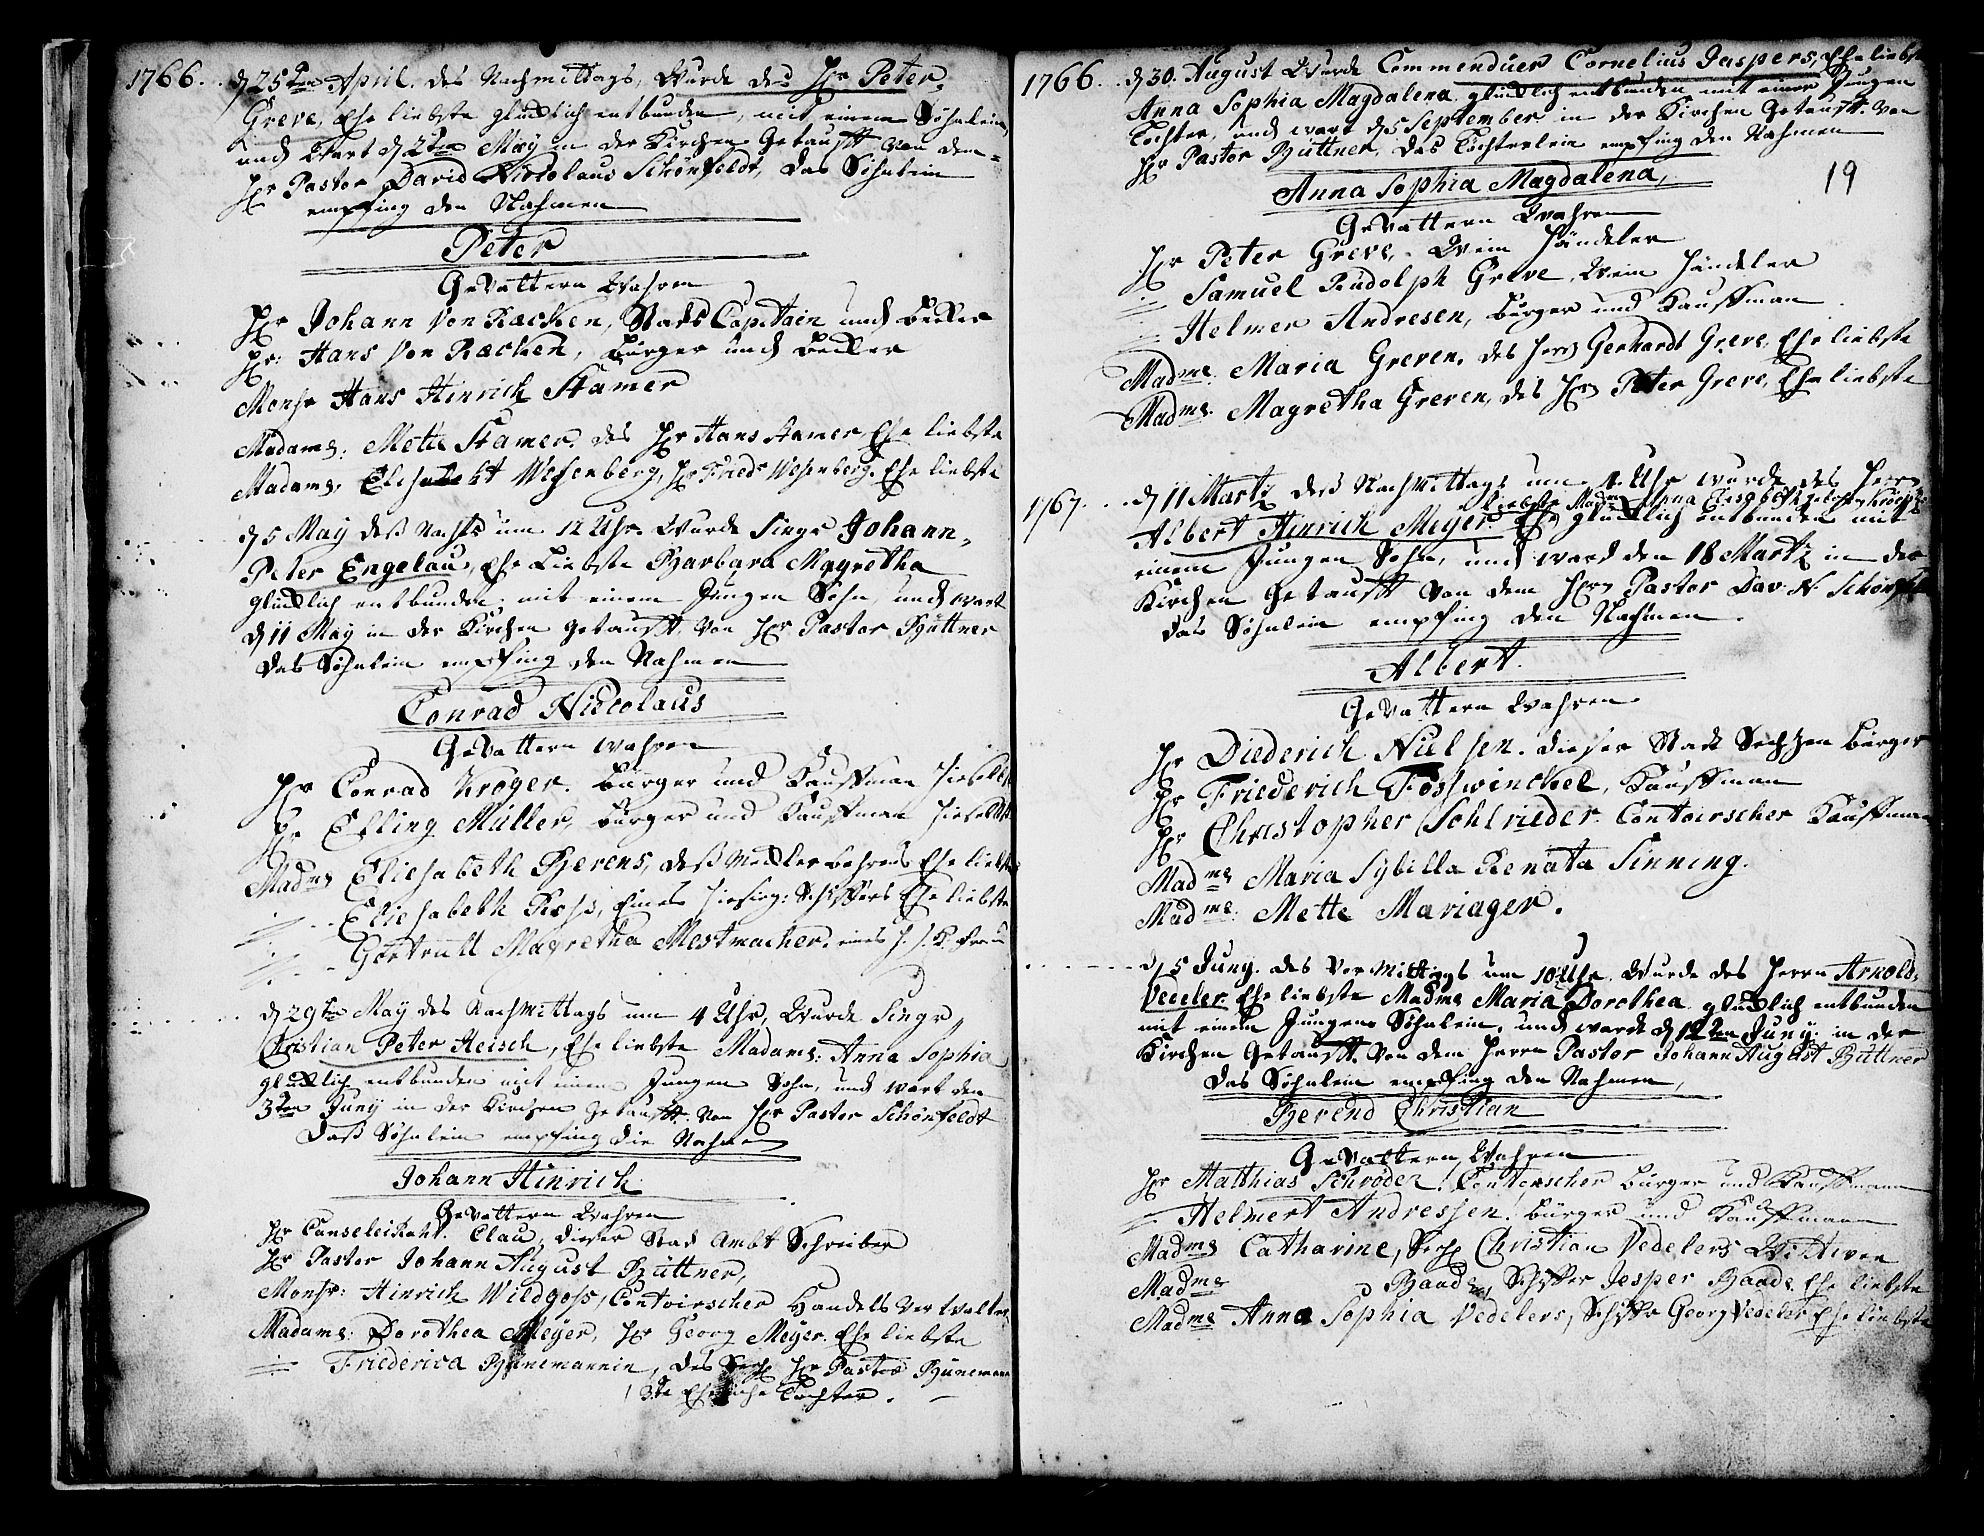 1766. d 25ten April. des Nachmittags, Wurde des Hr Peter
Greve, Ehe liebste glücklich entbunden, mit einem Söhnlein,
und Wart d 2ten May in der Kirchen Getaufft Von dem
Hr Pastor David Nicolaus Schönfeldt, das Söhnlein
empfing den Nahmen
Peter
Gevattern Wahren
Hr Johann Von Racken, Stads Capitain und Becker
Hr: Hans Von Racken, Bürger und Becker
Monsr Hans Hinrich Stamer
Madame: Mette Stamer, des Hr Hans Stamer Ehe liebste
Madame, Elisabeht Wesenberg, Hr Friedr Wesenberg. Ehe liebste
d 5 May deß Nachts um 12 Uhr. Wurde Singr Johann
Peter Engelau, Ehe Liebste Barbara Magretha
glücklich entbunden mit einem Jungen Sohn, und wart
d 11 May in der Kirchen getaufft, von Hr Pastor Büttner
das Söhnlein empfing den Nahmen
Conrad Nicolaus
Gevattern wahren
Hr Conrad Kröger. Bürger und Kauffman hieselbst
Hr Efling Müller, Bürger und Kauffman hieselbst
Madme Eliesabeth Berens, deß Meckler Behrens Ehe liebste
Eliesabeth, Eines hiesig: Schiffers Ehe liebste
Gertrutt Magretha Mestmacher, eines h. K. Frau
d 29ten May des Nachmittags um 4 Uhr, Wurde Singr
Christian Peter Reisch, Ehe liebste Madame: Anna Sophia
glücklich entbunden mit einem Jungen Sohn, und wart den
3ten Juny in der Kirchen Getaufft. Von Hr Pastor Schönfeldt
Daß Söhnlein empfing die Nahmen
Johann Hinrich
Gevattern Wahren
Hr Canseleiraht. Clau, dieser Stad Ambt Schreiber
Hr Pastor Johann August Büttner,
Monsr: Hinrich Wildgoss, Contoirscher Handels Verwalter
Madame: Dorothea Meyer, Hr Georg Meyer. Ehe liebste
Friederica Bünemannin, des Seel Hr Pastor Bünemann
Ehliche Tochter.
1766. d 30. August Wurde Commendüer Cornelius Jaspers, Ehe liebste
Anna Sophia Magdalena glücklich entbunden mit einer Jungen
Tochter, und wart d 5 September in der Kirchen Getaufft. Von
Hr Pastor Büttner, das Töchterlein empfing den Nahmen
19
Anna Sophia Magdalena,
Gevattern Wahren
Hr Peter Greve, Wein Händeler
Samuel Rudolph Greve, Wein Händeler
Helmer Andresen, Bürger und Kauffman
Madme. Maria Greven, des Herrn Gerhardt Greve, Ehe liebste
Madme. Magretha Greven, des Hrn Peter Greve, Ehe liebste
1767. d 11 Martz deß Nachmittags um 4. Uhr wurde des Herrn
liebste Madme Anna Elisabeth
Albert Hinrich Meyer Ehe glücklich entbunden mit
einem Jungen Sohn, und ward den 18 Martz in der
Kirchen Getaufft Von dem Hrn Pastor Dav. N. Schönfeldt
das Söhnlein empfing den Nahmen.
Albert.
Gevattern Wahren
Hr Diederich Nielsen. dieser Stadt Sechzen Bürger
Hr Friederich Fosswinckel, Kauffman
Hr Christopher Schlrieder. Contoirscher Kauffman
Madme Maria Sybilla Renata Sinning.
Madme: Mette Mariager.
d 5 Juny. des Vormittags um 10 Uhr Wurde des Herrn Arnold
Vedeler Ehe liebste Madme Maria Dorothea glücklich entbunden
mit einem Jungen Söhnlein, und warde d 12ten Juny in der
Kirchen Getaufft. Von dem Herrn Pastor Johann August Büttner
das Söhnlein empfing den Nahmen,
Berend Christian
Gevattern Wahren
Hr Matthias Schröder, Contoirscher Bürger und Kauffmann
Helmert Andressen, Bürger und Kauffmann
Madme Catharine, Seel Christian Vedelers Wittwe
Madme Baade, Schiffer Jesper Baade Ehe liebste
Madme Anna Sophia Vedelers, Schiffr Georg Vedeler Ehe liebste